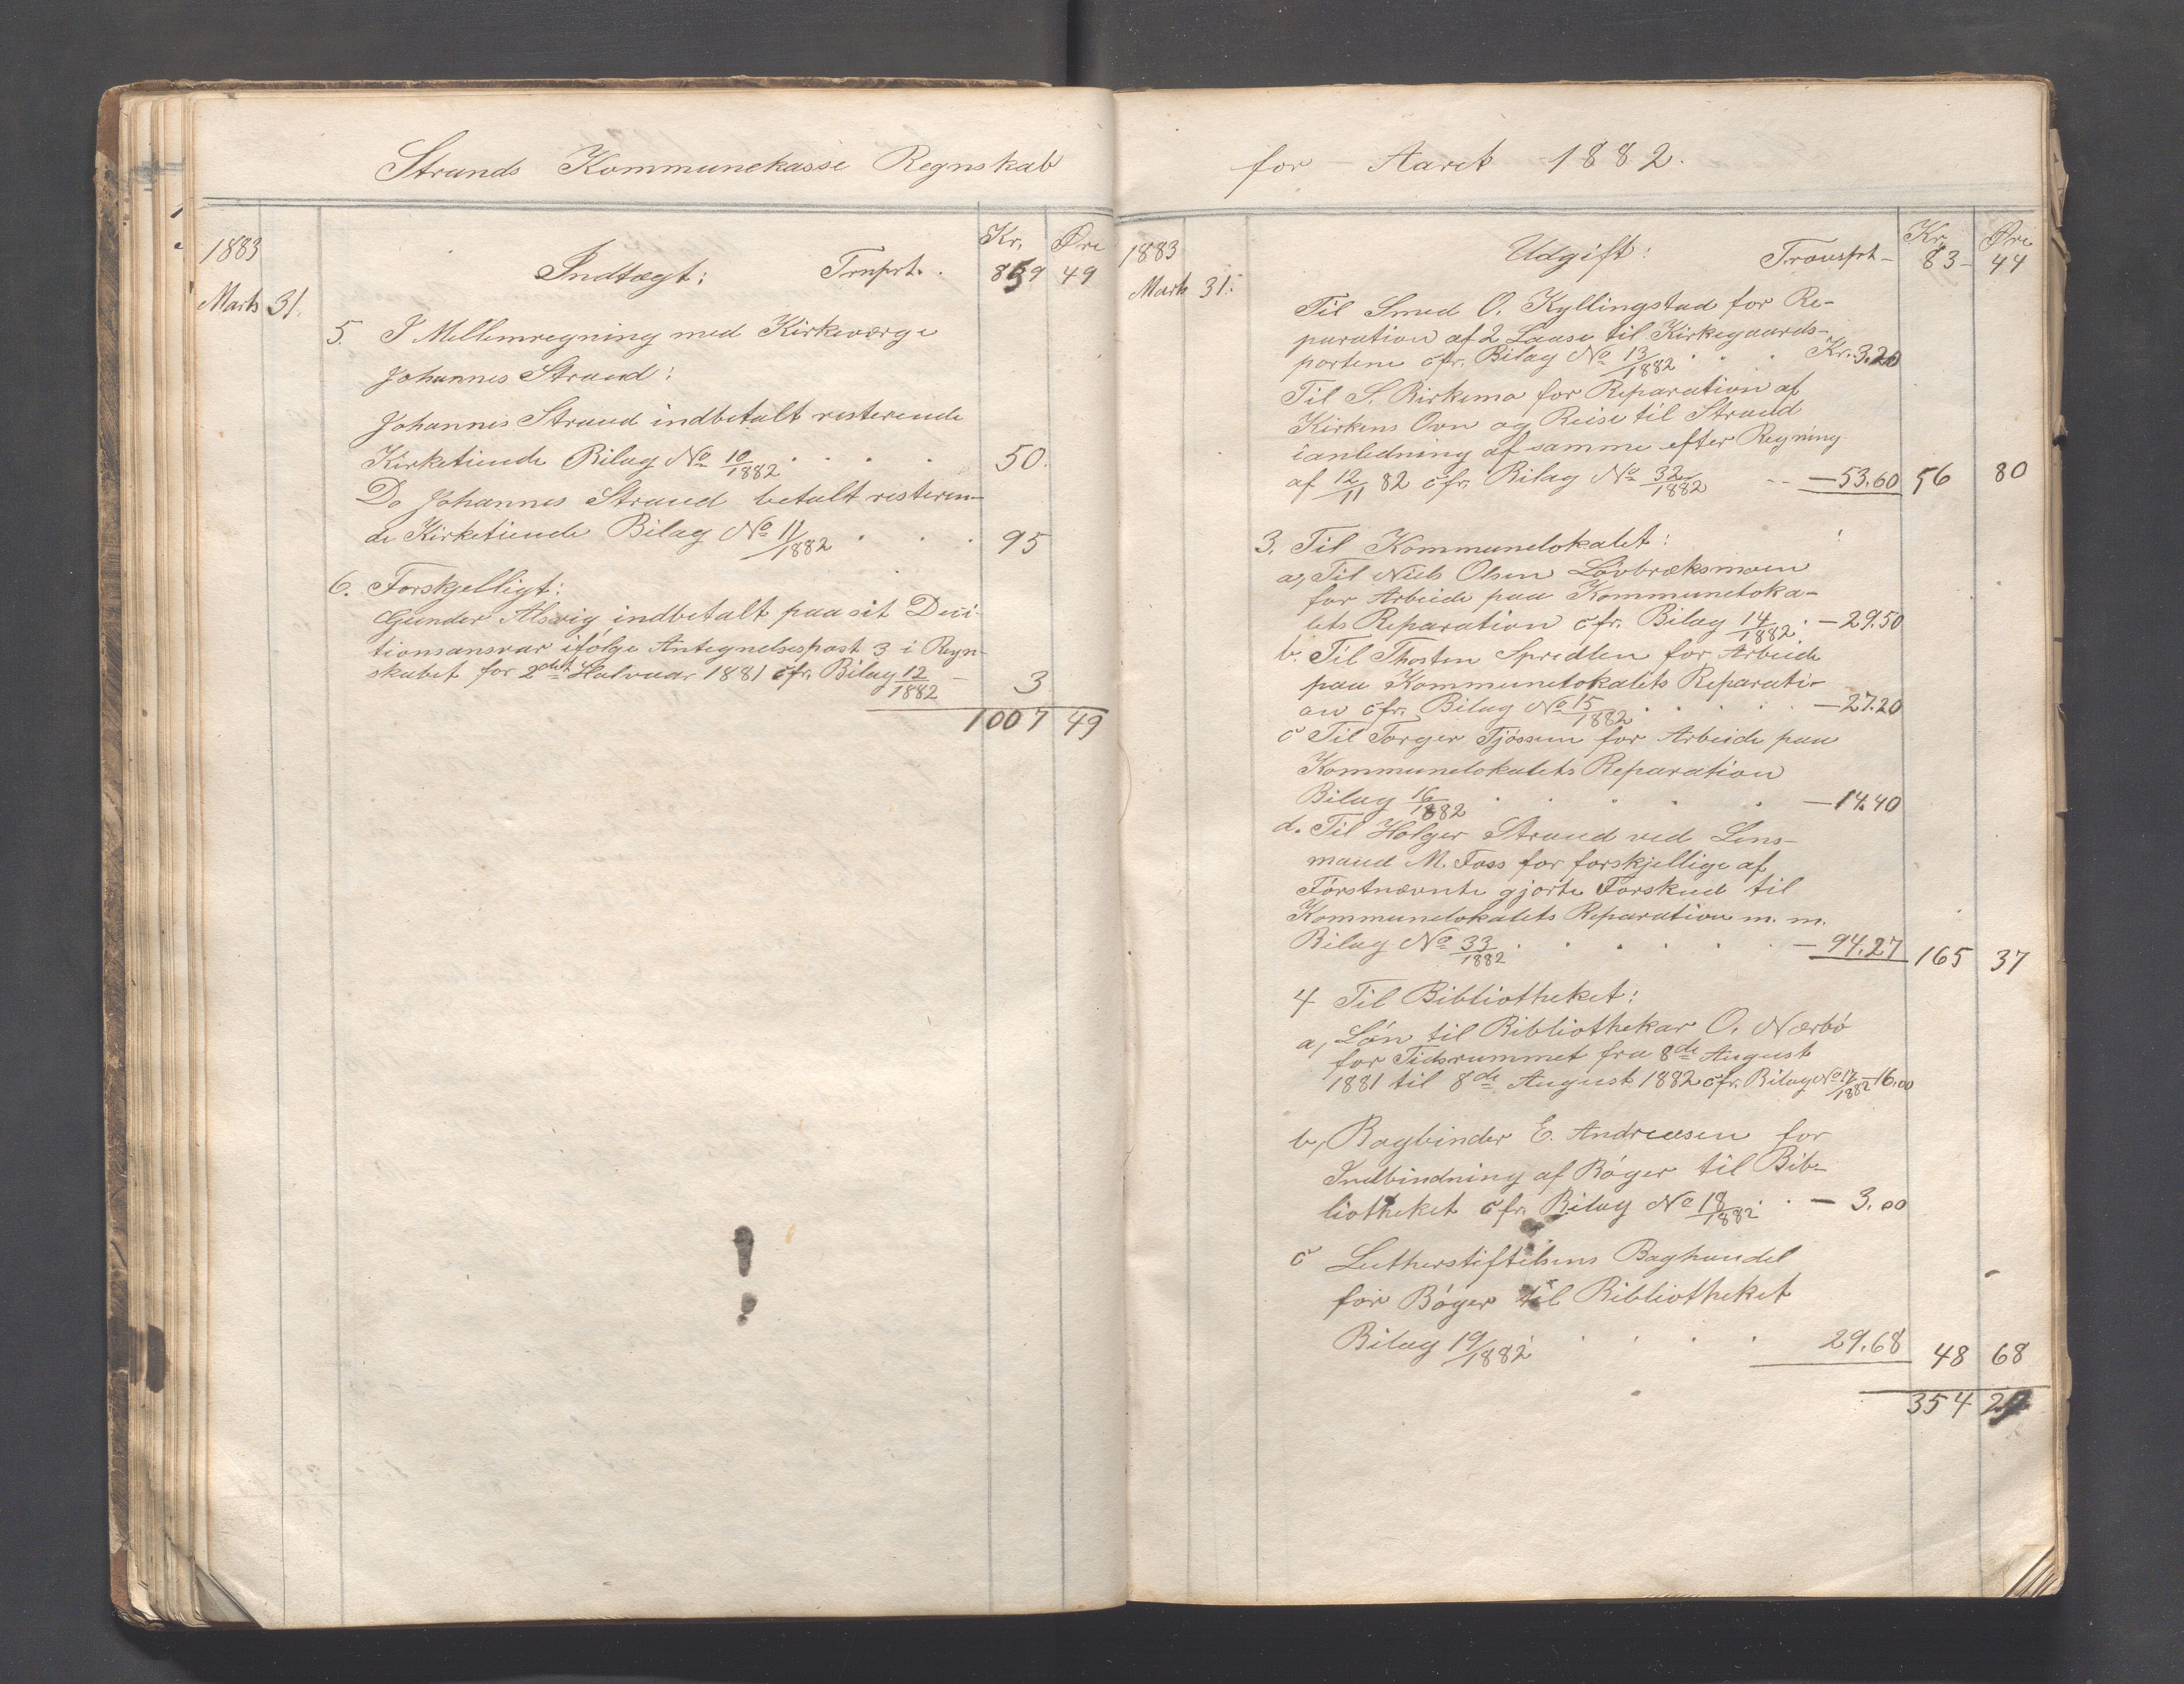 Strands Kommunekasse Regnskab
1883
Indtægt: Trnsprt. . Kr. 859 Øre 49
Marts 31.
5. I Mellemregning med Kirkeværge
Johannes Strand:
Johannes Strand indbetalt resterende
Kirketiende Bilag No 10/1882 . . . . 50.
Do Johannes Strand betalt resteren-
de Kirketiende Bilag No 11/1882 . . . 95
6. Forskjelligt:
Gunder Alsvig indbetalt paa sit Deci-
tionsansvar ifølge Antegnelsespost 3 i Regn-
skabet for 2det Halvaar 1881 cfr. Bilag 12/1882 – 3
1007 49
for Aaret 1882.
1883
Udgift: Transprt – Kr. 83 – Øre 44
Marts 31.
Til Smed O. Kyllingstad for Re-
paration af 2 Laase til Kirkegaards-
portene cfr. Bilag No 13/1882 . . . Kr. 3.20
Til S. Birkemo for Reparation af
Kirkens Ovn og Reise til Strand
ianledning af samme efter Regning
af 12/11 82 cfr. Bilag No 32/1882 – 53.60 56 80
3. Til Kommunelokalet:
a, Til Niels Olsen Løvbræksmoen
for Arbeide paa Kommuneloka-
lets Reparation cfr. Bilag 14/1882 . – 29.50
b. Til Thosten Spredlen for Arbeide
paa Kommunelokalets Reparati-
on cfr. Bilag No 15/1882 . . . . – 27.20
c Til Torger Tjøssem for Arbeide paa
Kommunelokalets Reparation
Bilag 16/1882 . . . . . – 14.40
d. Til Holger Strand ved Lens-
mand M. Foss for forskjellige af
Førstnævnte gjorte Forskud til
Kommunelokalets Reparation m. m.
Bilag No 33/1882 . . . . . – 94.27 165 37
4 Til Bibliotheket:
a, Løn til Bibliothekar O. Nærbø
for Tidsrummet fra 8de August
1881 til 8de August 1882 cfr. Bilag No 17/1882 – 16.00
b, Bogbinder E. Andreasen for
Indbindning af Bøger til Bib-
liotheket cfr. Bilag No 18/1882 . . – 3.00
c Lutherstiftelsens Boghandel
for Bøger til Bibliotheket
Bilag 19/1882 . . . . 29.68 48 68
354 29